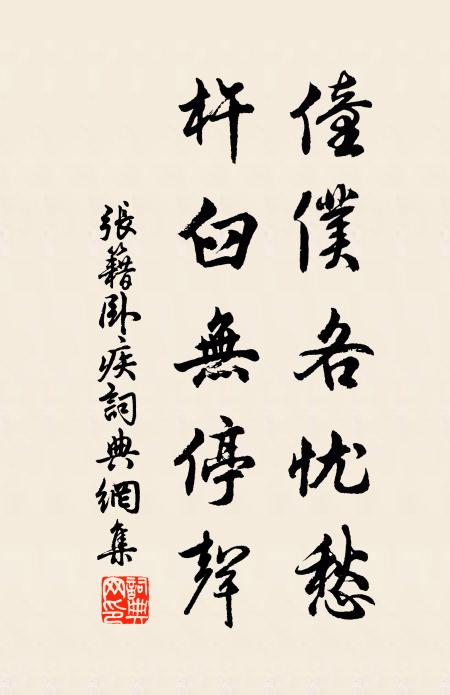 僮僕各忧愁
杵臼無停聲
張籍卧疾詞典網集
詞典网印